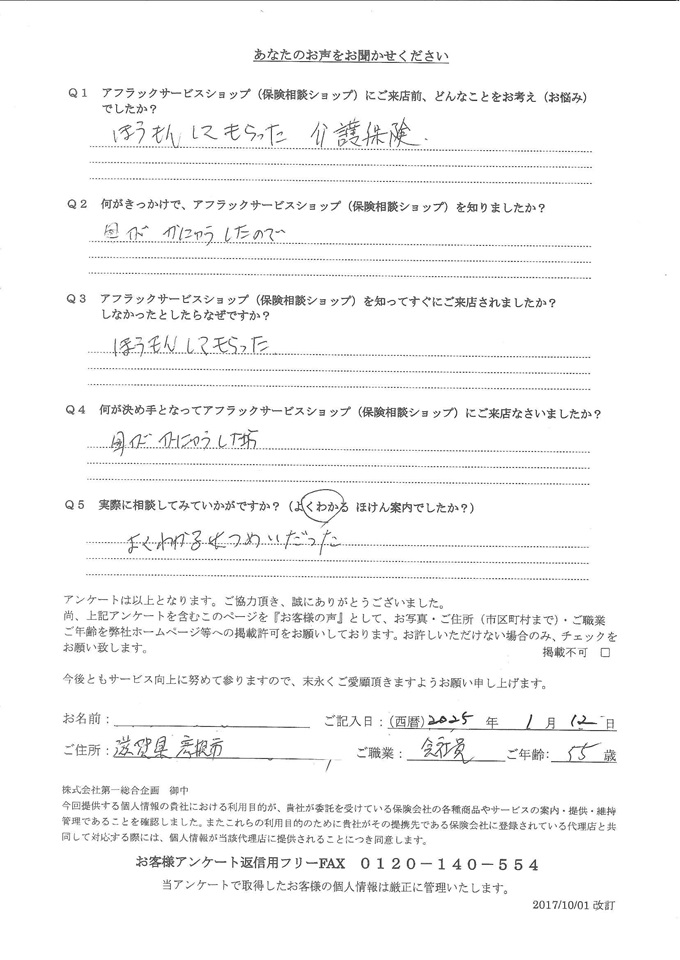 あなたのお声をお聞かせください
Q1 アフラックサービスショップ（保険相談ショップ）にご来店前、どんなことをお考え（お悩み）
でしたか？
ほうもんしてもらった 介護保険.
Q2 何がきっかけで、アフラックサービスショップ（保険相談ショップ）を知りましたか？
かにゅうしたので
Q3 アフラックサービスショップ（保険相談ショップ）を知ってすぐにご来店されましたか？
しなかったとしたらなぜですか？
ほうもんしてもらった
Q4 何が決め手となってアフラックサービスショップ（保険相談ショップ）にご来店なさいましたか？
かにゅうした
Q5 実際に相談してみていかがですか？（よくわかる ほけん案内でしたか？）
よくわかるせつめいだった
アンケートは以上となります。ご協力頂き、誠にありがとうございました。
尚、上記アンケートを含むこのページを『お客様の声』として、お写真・ご住所（市区町村まで）・ご職業
ご年齢を弊社ホームページ等への掲載許可をお願いしております。お許しいただけない場合のみ、チェックを
お願い致します。 掲載不可 □
今後ともサービス向上に努めて参りますので、末永くご愛顧頂きますようお願い申し上げます。
お名前： ご記入日：（西暦）2025 年 1 月 12 日
ご住所：滋賀県彦根市 ご職業：会社員 ご年齢：55 歳
株式会社第一総合企画 御中
今回提供する個人情報の貴社における利用目的が、貴社が委託を受けている保険会社の各種商品やサービスの案内・提供・維持
管理であることを確認しました。またこれらの利用目的のために貴社がその提携先である保険会社に登録されている代理店と共
同して対応する際には、個人情報が当該代理店に提供されることにつき同意します。
お客様アンケート返信用フリーFAX 0120－140－554
当アンケートで取得したお客様の個人情報は厳正に管理いたします。
2017/10/01 改訂